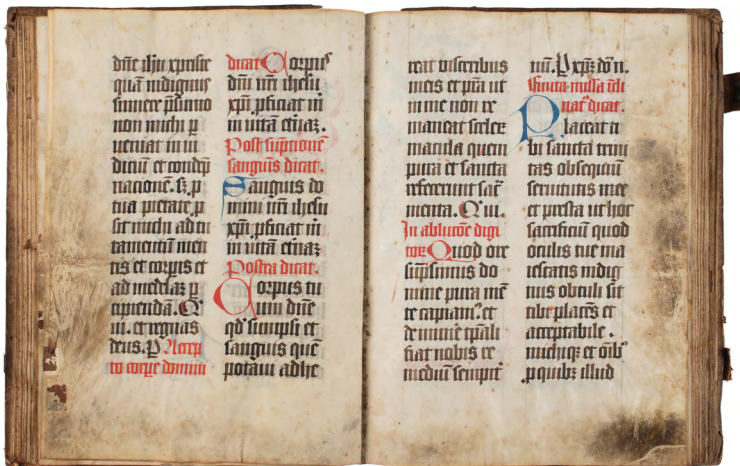 dñe ihu xpriste
quā indignus
sumere p̄sumo
non michi p
ueniat in iu
dicium et condēp
nacionē. sꝫ p
tua pietate p
sit michi ad tu
tamentū men
tis et corpus et
ad medelaꝫ p
cipiendā. Q
ui. et regnas
deus. P Accep
to corpe domini
dicat Corpus
dñi nr̄i ihesu
xpi pficiat m
in uitā et̄naꝫ.
Post sūptionē
sanguis dicat.
Sanguis do
mini nr̄i ihesu
xpi pficiat m
in uitā et̄naꝫ
Postea dicat.
Corpus tu
um dñe
qd̄ sumpsi et
sanguis quē
potaui adhe
reat uisceribus
meis et p̄ta ut
in me non re
maneat sceleꝝ
macula quem
pura et sancta
refecerunt sac̄
menta. Q ui.
In ablutōe digi
toꝝ Quod ore
sūpsimus do
mine pura mē
te capiam᷒. et
de mune tp̄ali
fiat nobis re
mediū sempit̄
nū. P xpm̄ dn̄.
Finita missa īcli
nat᷒ dicat.
Placeat ti
bi sancta trini
tas obsequiū
seruitutis mee
et presta ut hoc
sacrificiū quod
oculis tue ma
iestatis indig
nus obtuli sit
tibi placēs et
acceptabile.
michiqꝫ et oīb᷒
p quibꝫ illud